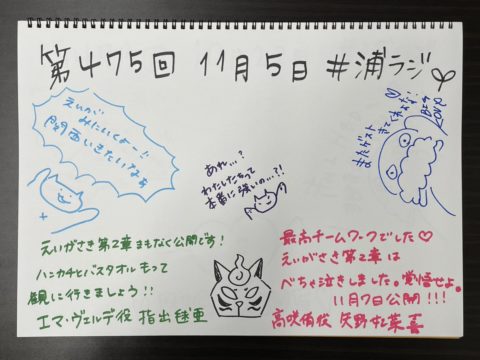 第475回 11月5日 #浦ラジ
えいが
みにいくよー!!
関西いきたいなぁ
あれ…?
わたしたちって
本番に強いの…?!
またゲスト
きてくれよな!
BIG
LOVE
えいがさき第2章まもなく公開です!
ハンカチとバスタオルもって
観に行きましょう!!
エマ・ヴェルデ役 指出毬亜
最高チームワークでした♡
えいがさき第2章は
べちゃ泣きしました。覚悟せよ。
11月7日公開!!!
高咲侑役 矢野妃菜喜